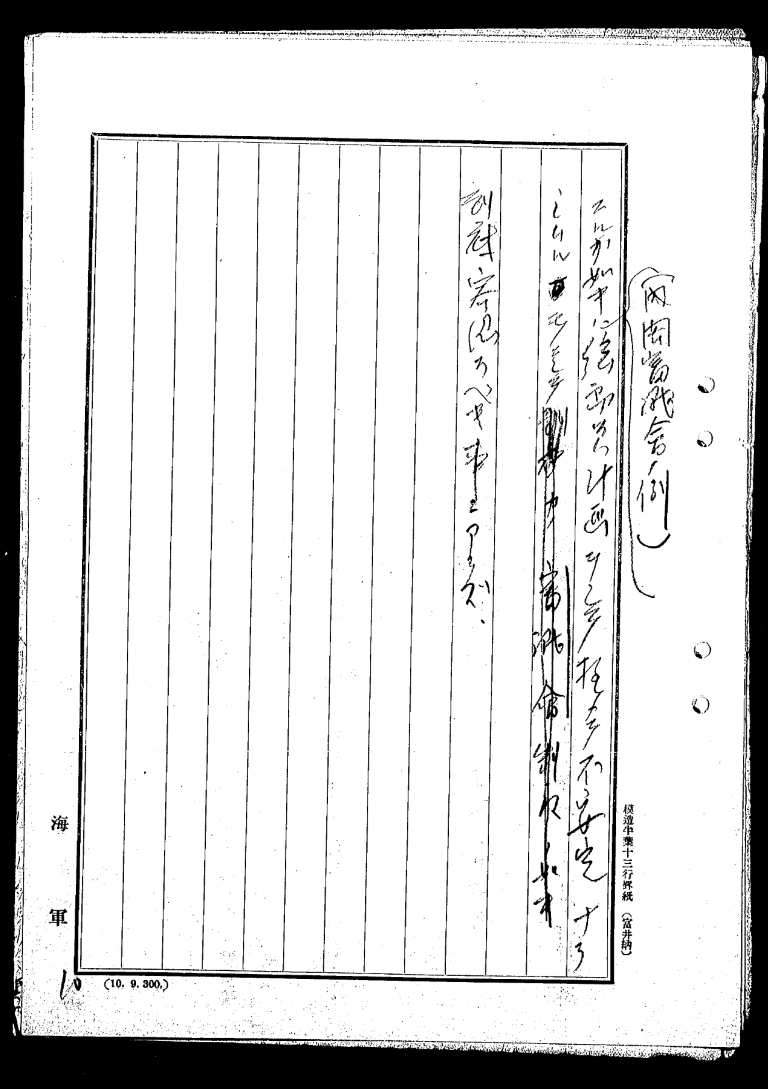 （内閣審議會ノ例）
スルガ如キハ總動員計画ヲシテ極メテ不安定ナラ
シムルモノニシテ 審議會制度ノ如キ
到底容認スベキ事ニアラズ、
模造半葉十三行罫紙 （富井納）
海軍
(10. 9. 300.)